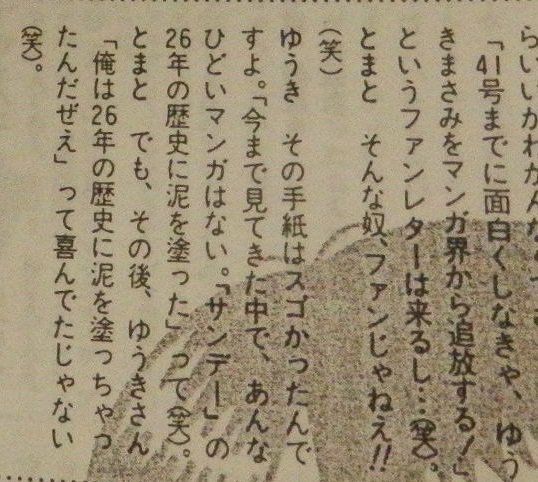 らいいかわかんな
「41号までに面白くしなきゃ、ゆう
きまさみをマンガ界から追放する！」
というファンレターは来るし…(笑)。
とまと　そんな奴、ファンじゃねえ!!
(笑)
ゆうき　その手紙はスゴかったんで
すよ。「今まで見てきた中で、あんな
ひどいマンガはない。「サンデー」の
26年の歴史に泥を塗った」って(笑)。
とまと　でも、その後、ゆうきさん
「俺は26年の歴史に泥を塗っちゃっ
たんだぜえ」って喜んでたじゃない
(笑)。